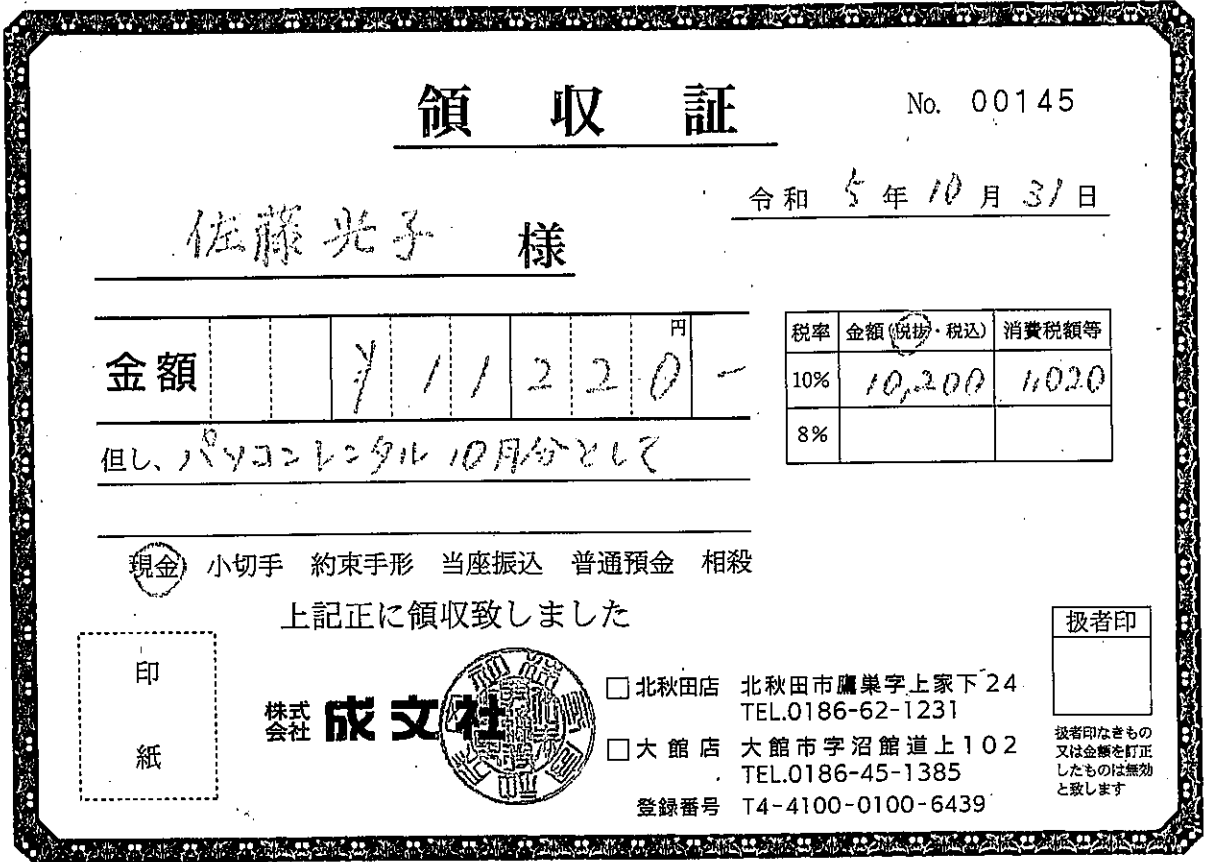 領収証
No. 00145
令和 5 年 10 月 31 日
佐藤光子 様
金額 ¥11220円-
税率 金額(税抜・税込) 消費税額等
10% 10,200 1,020
8%
但し、パソコンレンタル10月分として
現金 小切手 約束手形 当座振込 普通預金 相殺
上記正に領収致しました
印紙
扱者印
株式会社 成文社
□北秋田店 北秋田市鷹巣字上家下24
TEL.0186-62-1231
□大館店 大館市字沼館道上102
TEL.0186-45-1385
登録番号 T4-4100-0100-6439
扱者印なきもの
又は金額を訂正
したものは無効
と致します